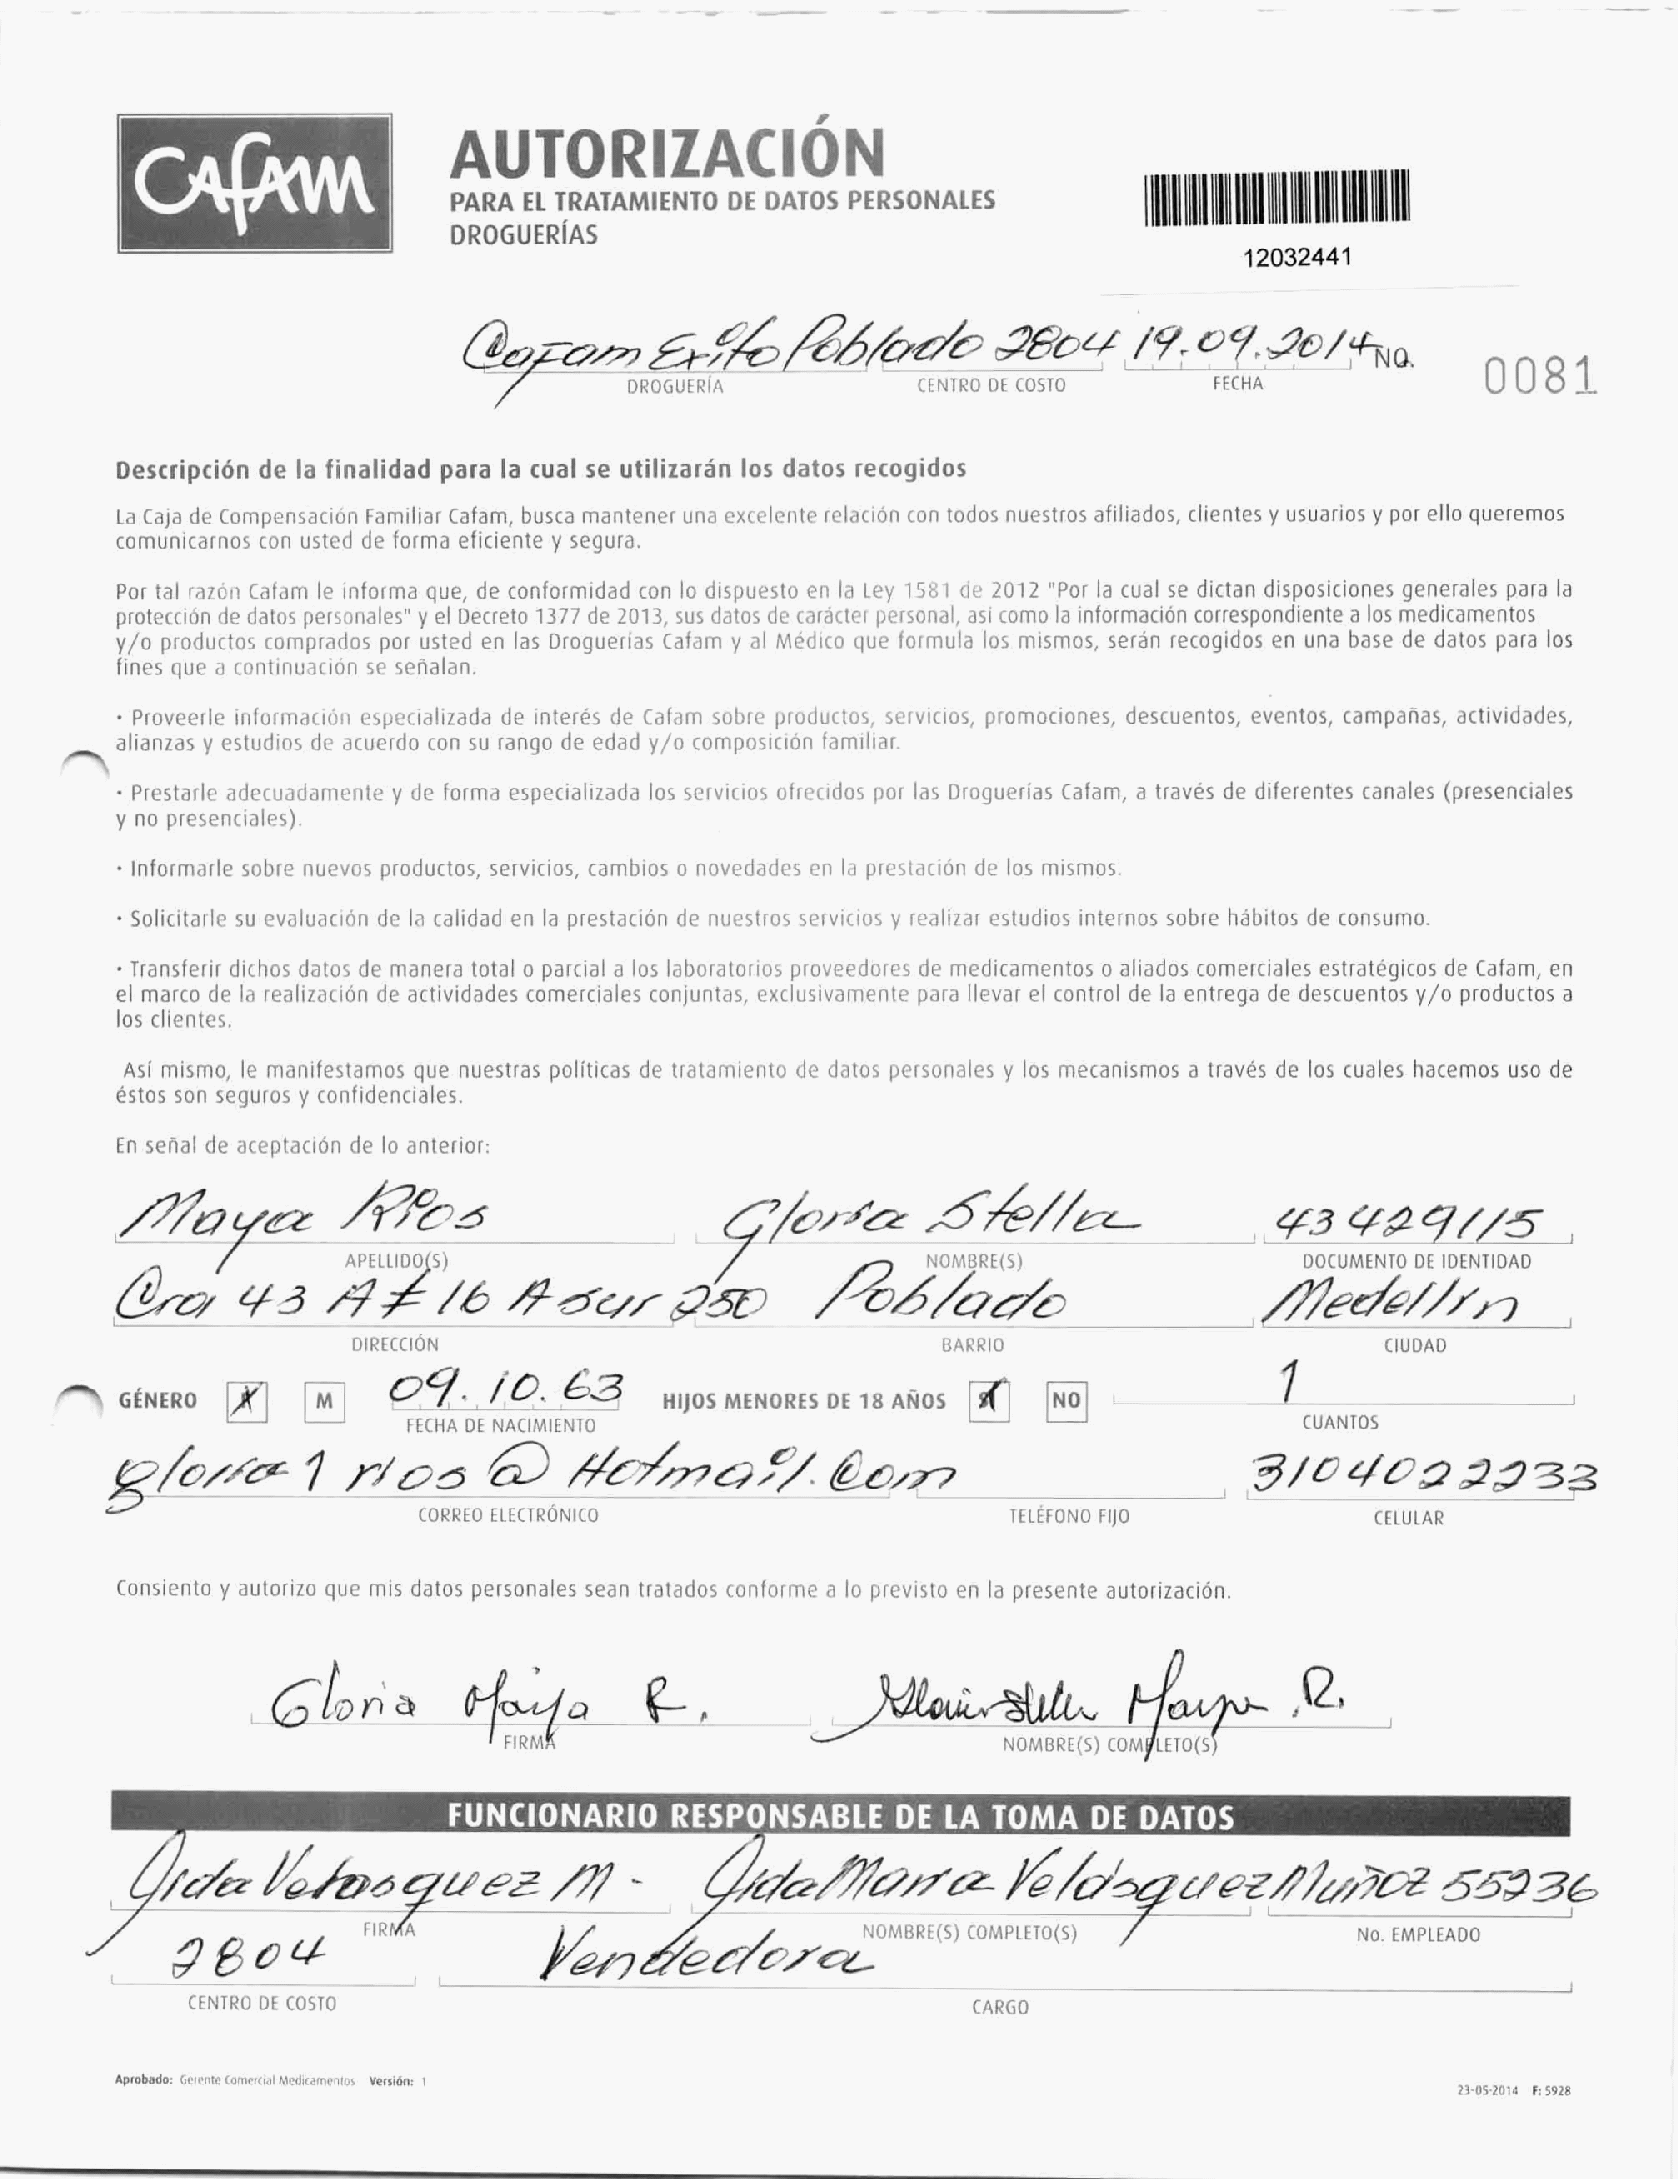 CAFAM
AUTORIZACIÓN
PARA EL TRATAMIENTO DE DATOS PERSONALES
DROGUERÍAS
12032441
Cafam Exito Poblado 2804 19.09.2014 No. 0081
DROGUERÍA CENTRO DE COSTO FECHA
Descripción de la finalidad para la cual se utilizarán los datos recogidos
La Caja de Compensación Familiar Cafam, busca mantener una excelente relación con todos nuestros afiliados, clientes y usuarios y por ello queremos
comunicarnos con usted de forma eficiente y segura.
Por tal razón Cafam le informa que, de conformidad con lo dispuesto en la Ley 1581 de 2012 "Por la cual se dictan disposiciones generales para la
protección de datos personales" y el Decreto 1377 de 2013, sus datos de carácter personal, asi como la información correspondiente a los medicamentos
y/o productos comprados por usted en las Droguerías Cafam y al Médico que formula los mismos, serán recogidos en una base de datos para los
fines que a continuación se señalan.
· Proveerle información especializada de interés de Cafam sobre productos, servicios, promociones, descuentos, eventos, campañas, actividades,
alianzas y estudios de acuerdo con su rango de edad y/o composición familiar.
· Prestarle adecuadamente y de forma especializada los servicios ofrecidos por las Droguerías Cafam, a través de diferentes canales (presenciales
y no presenciales).
· Informarle sobre nuevos productos, servicios, cambios o novedades en la prestación de los mismos.
· Solicitarle su evaluación de la calidad en la prestación de nuestros servicios y realizar estudios internos sobre hábitos de consumo.
· Transferir dichos datos de manera total o parcial a los laboratorios proveedores de medicamentos o aliados comerciales estratégicos de Cafam, en
el marco de la realización de actividades comerciales conjuntas, exclusivamente para llevar el control de la entrega de descuentos y/o productos a
los clientes.
Así mismo, le manifestamos que nuestras políticas de tratamiento de datos personales y los mecanismos a través de los cuales hacemos uso de
éstos son seguros y confidenciales.
En señal de aceptación de lo anterior:
Maya Rios Gloria Stella 43429115
APELLIDO(S) NOMBRE(S) DOCUMENTO DE IDENTIDAD
Cra 43 A # 16 A sur 250 Poblado Medellin
DIRECCIÓN BARRIO CIUDAD
GÉNERO X M 09.10.63 HIJOS MENORES DE 18 AÑOS X NO 1
FECHA DE NACIMIENTO CUANTOS
gloria1rios@Hotmail.Com 3104022233
CORREO ELECTRÓNICO TELÉFONO FIJO CELULAR
Consiento y autorizo que mis datos personales sean tratados conforme a lo previsto en la presente autorización.
Gloria Maya R. Gloria Stella Maya R.
FIRMA NOMBRE(S) COMPLETO(S)
FUNCIONARIO RESPONSABLE DE LA TOMA DE DATOS
Velasquez M. Maria Velásquez Muñoz 55236
FIRMA NOMBRE(S) COMPLETO(S) No. EMPLEADO
2804 Vendedora
CENTRO DE COSTO CARGO
Aprobado: Gerente Comercial Medicamentos Versión: 1
23-05-2014 F: 5928